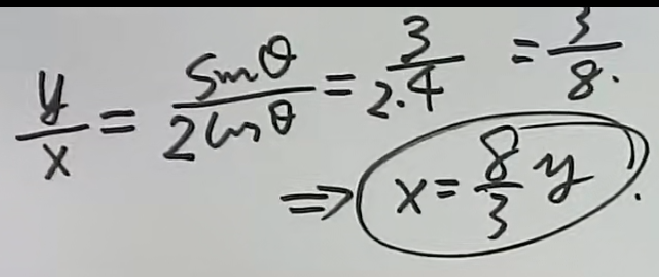 y/x = sinθ/2cosθ = 3/2.4 = 3/8.
⇒ x = 8/3 y.